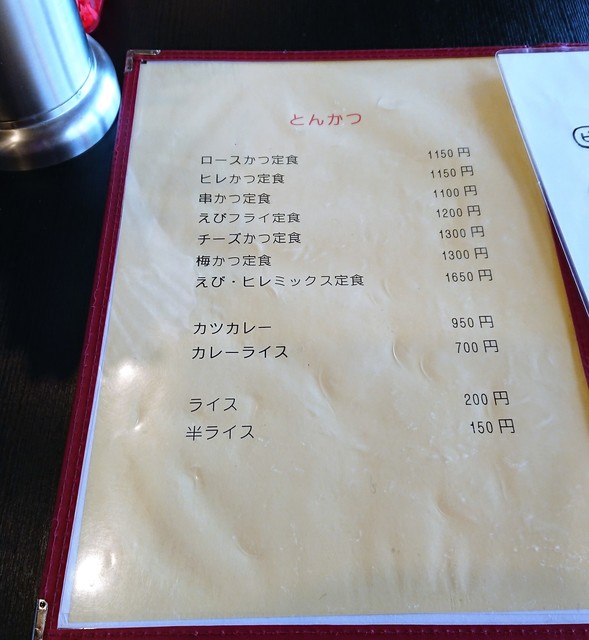 とんかつ
ロースかつ定食 1150円
ヒレかつ定食 1150円
串かつ定食 1100円
えびフライ定食 1200円
チーズかつ定食 1300円
梅かつ定食 1300円
えび・ヒレミックス定食 1650円
カツカレー 950円
カレーライス 700円
ライス 200円
半ライス 150円